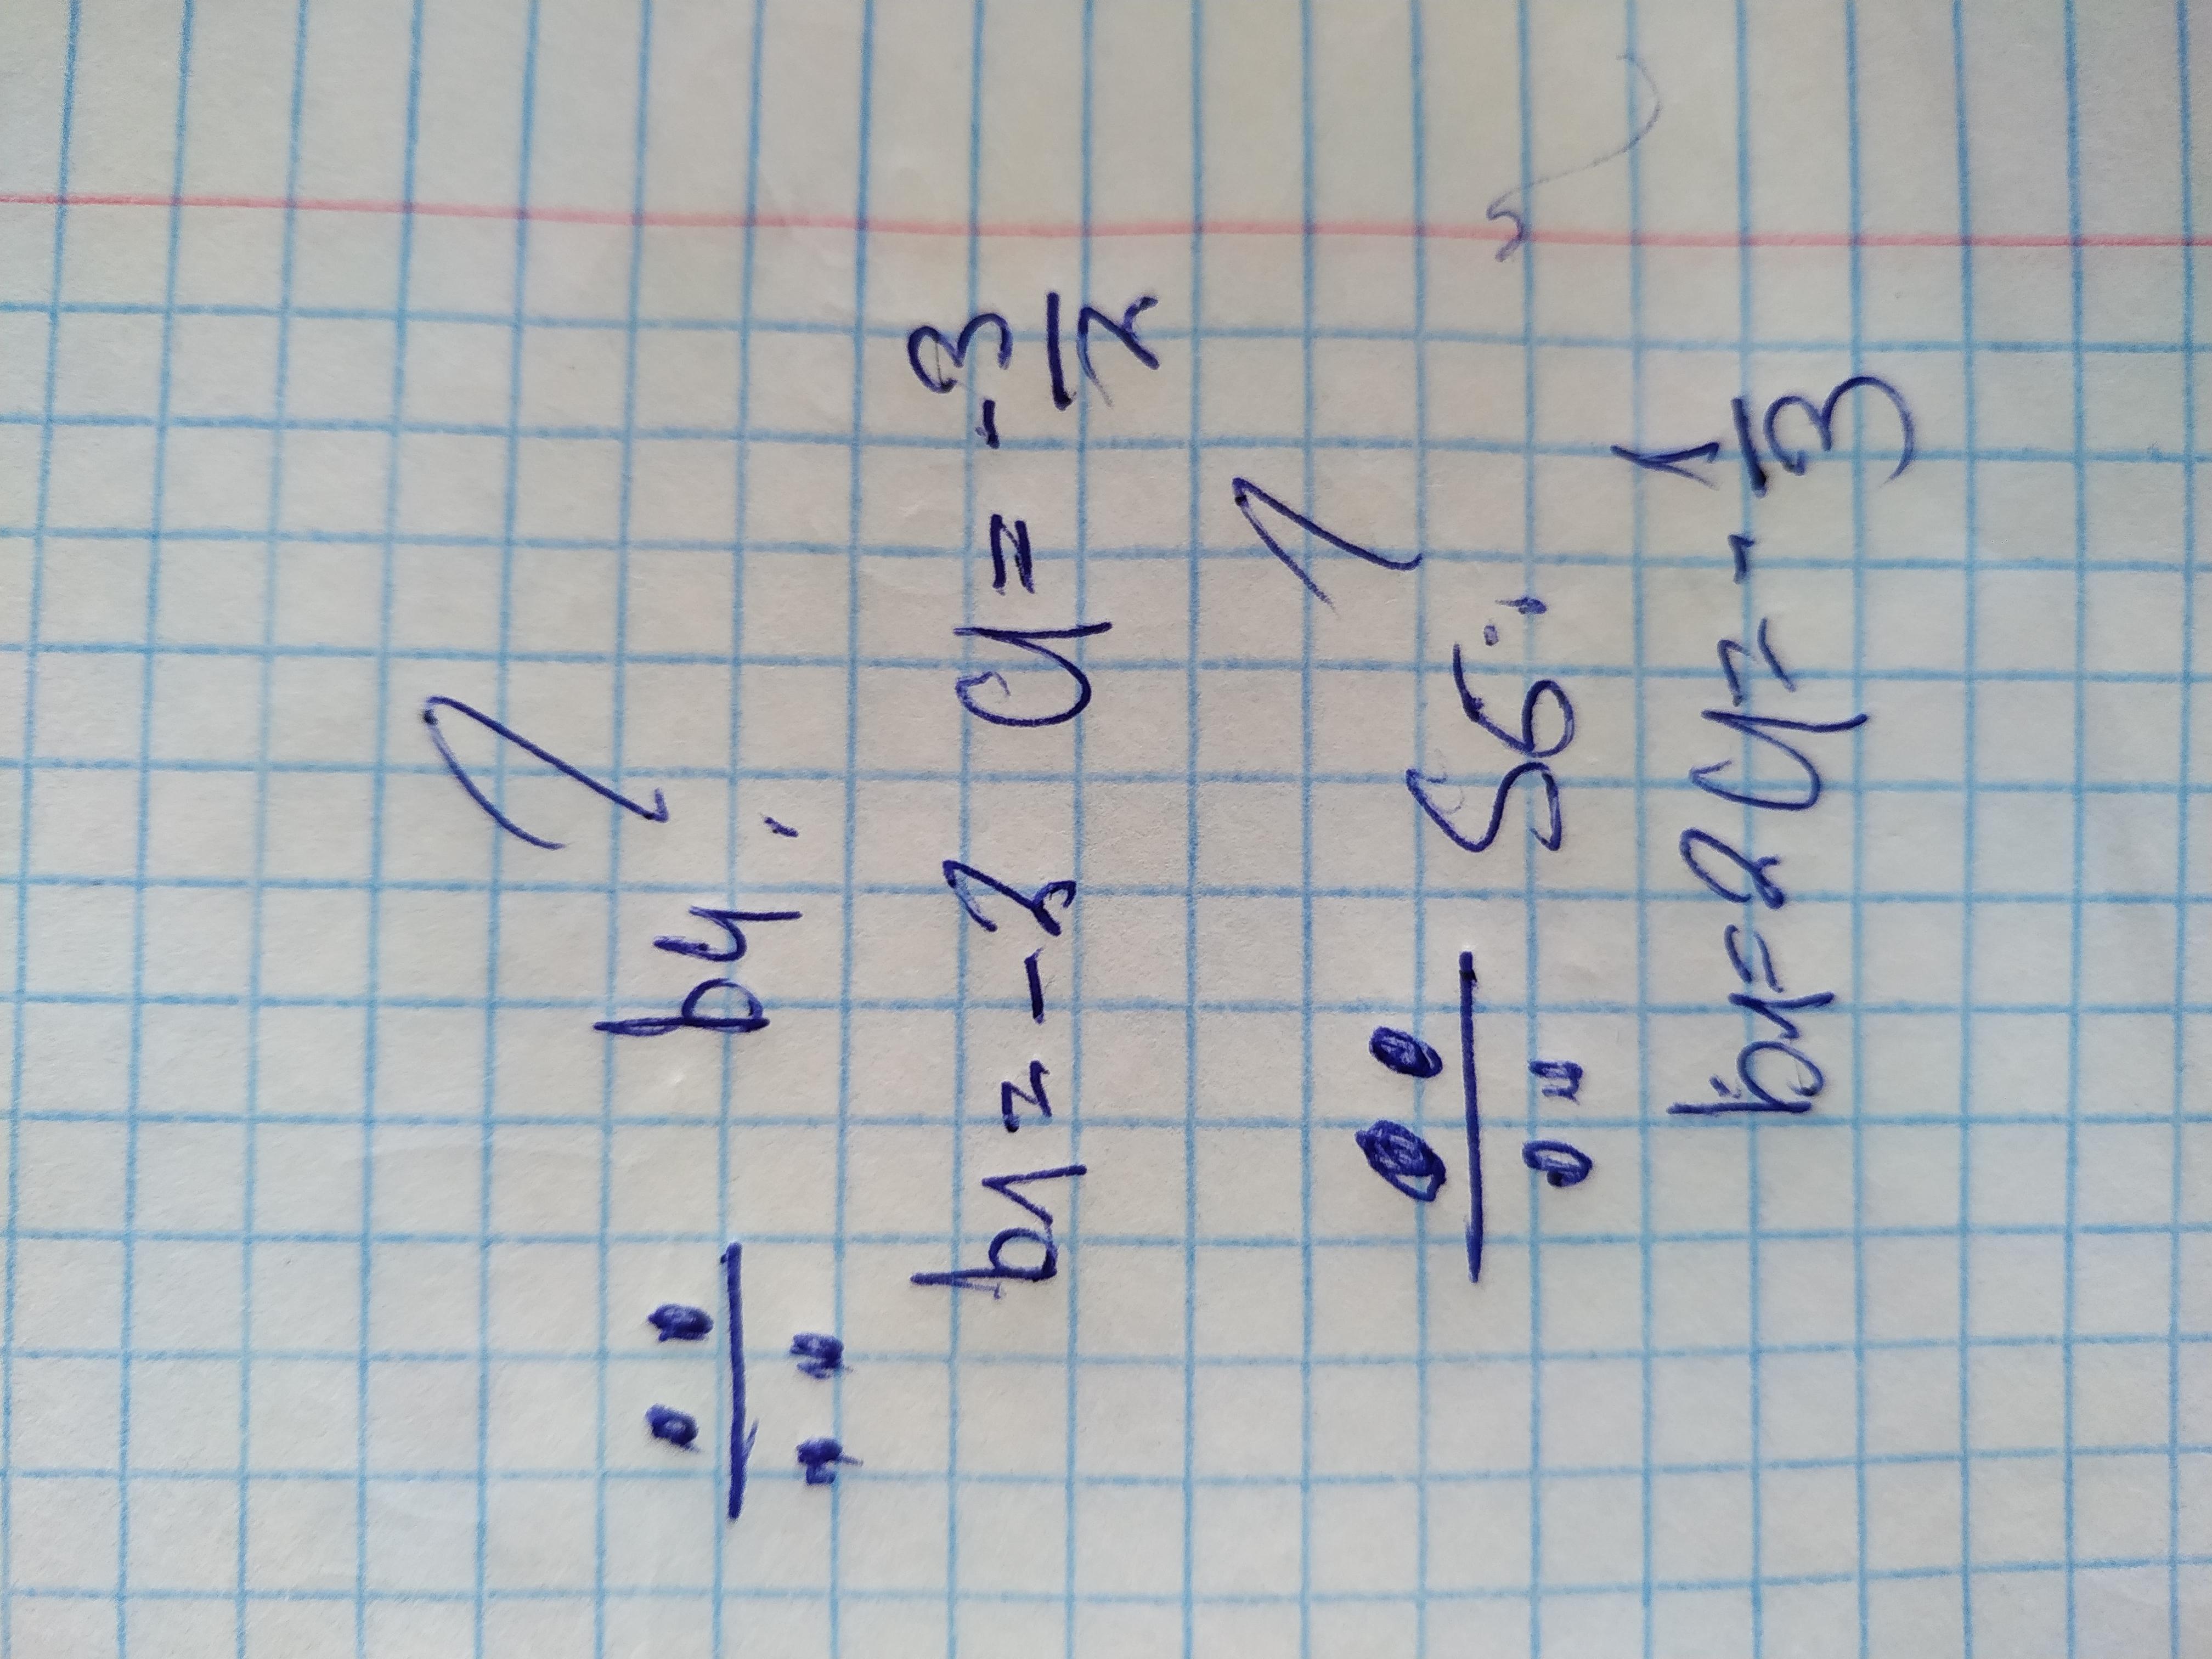 ÷÷ b4, ?
b1 = -2 q = -3/2
÷÷ S6: ?
b1=2 q= -1/3